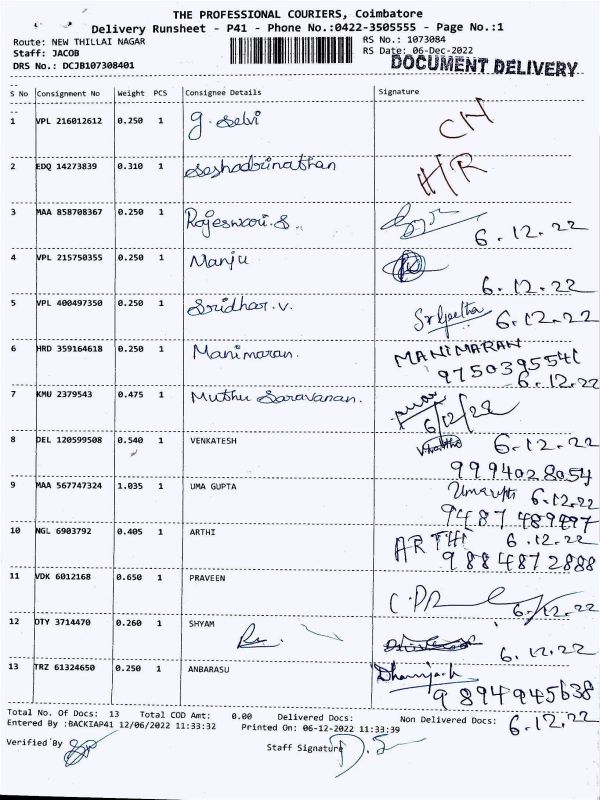 THE PROFESSIONAL COURIERS, Coimbatore
Delivery Runsheet - P41 - Phone No.:0422-3505555 - Page No.:1
Route: NEW THILLAI NAGAR RS No.: 1073084
Staff: JACOB RS Date: 06-Dec-2022
DRS No.: DCJB107308401 DOCUMENT DELIVERY
S No Consignment No Weight PCS Consignee Details Signature
1 VPL 216012612 0.250 1 G. Selvi CH
2 EDQ 14273839 0.310 1 Seshadrinathan H/R
3 MAA 858708367 0.250 1 Rajeswari.S.
6.12.22
4 VPL 215750355 0.250 1 Manju
6.12.22
5 VPL 400497350 0.250 1 Sridhar.v.
6.12.22
6 HRD 359164618 0.250 1 Manimaran. MANIMARAN
9750395541
6.12.22
7 KMU 2379543 0.475 1 Muthu Saravanan.
6/12/22
8 DEL 120599508 0.540 1 VENKATESH 6.12.22
9994028054
9 MAA 567747324 1.035 1 UMA GUPTA 6.12.22
9487 489497
10 NGL 6903792 0.405 1 ARTHI ARTHI 6.12.22
9884872888
11 VDK 6012168 0.650 1 PRAVEEN
6/12.22
12 DTY 3714470 0.260 1 SHYAM
6.12.22
13 TRZ 61324650 0.250 1 ANBARASU
9894945638
Total No. Of Docs: 13 Total COD Amt: 0.00 Delivered Docs: Non Delivered Docs: 6.12.22
Entered By :BACKIAP41 12/06/2022 11:33:32 Printed On: 06-12-2022 11:33:39
Verified By Staff Signature